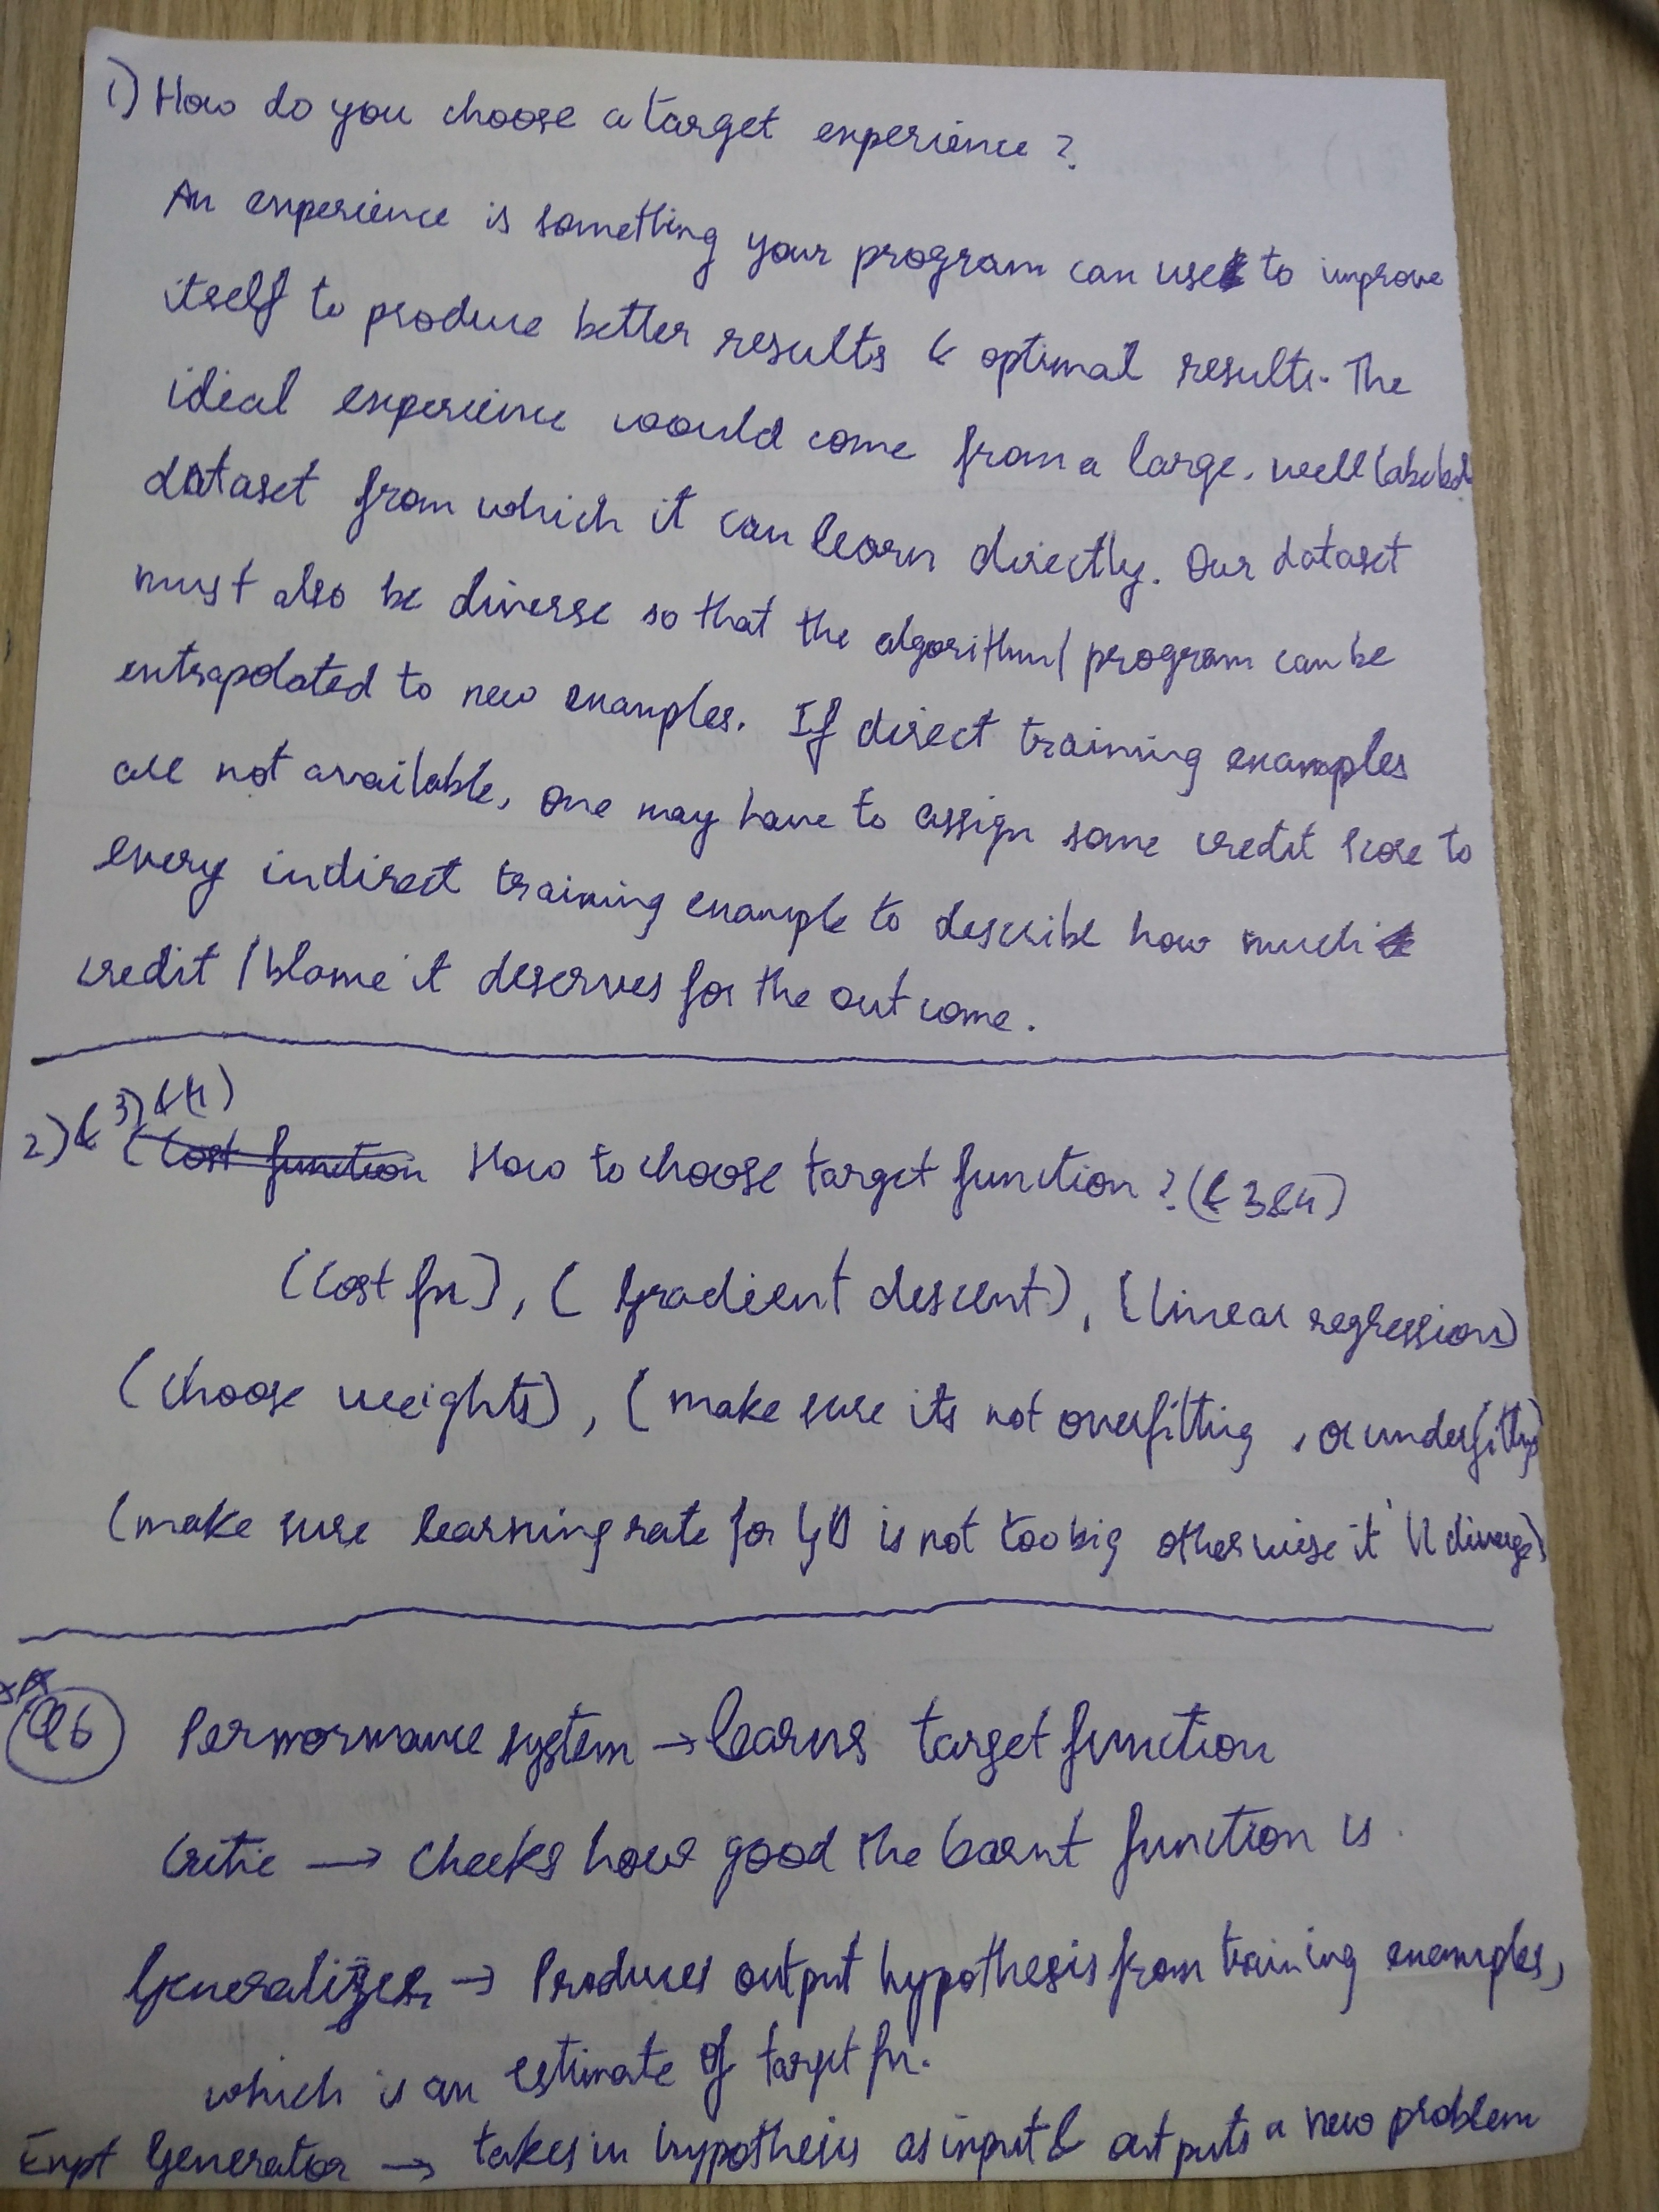 1) How do you choose a target experience?
An experience is something your program can use to improve
itself to produce better results & optimal results. The
ideal experience would come from a large, well labeled
dataset from which it can learn directly. Our dataset
must also be diverse so that the algorithm/program can be
extrapolated to new examples. If direct training examples
are not available, one may have to assign some credit score to
every indirect training example to describe how much
credit/blame it deserves for the outcome.
2) & 3) & 4)
(Cost function How to choose target function? (& 3&4)
(Cost fn), (Gradient descent), (linear regression)
(choose weights), (make sure its not overfitting, or underfitting)
(make sure learning rate for GD is not too big otherwise it'll diverge)
Q6 Permormance system → learns target function
Critic → Checks how good the learnt function is.
Generalizer → Produces output hypothesis from training examples,
which is an estimate of target fn.
Expt Generator → takes in hypothesis as input & outputs a new problem